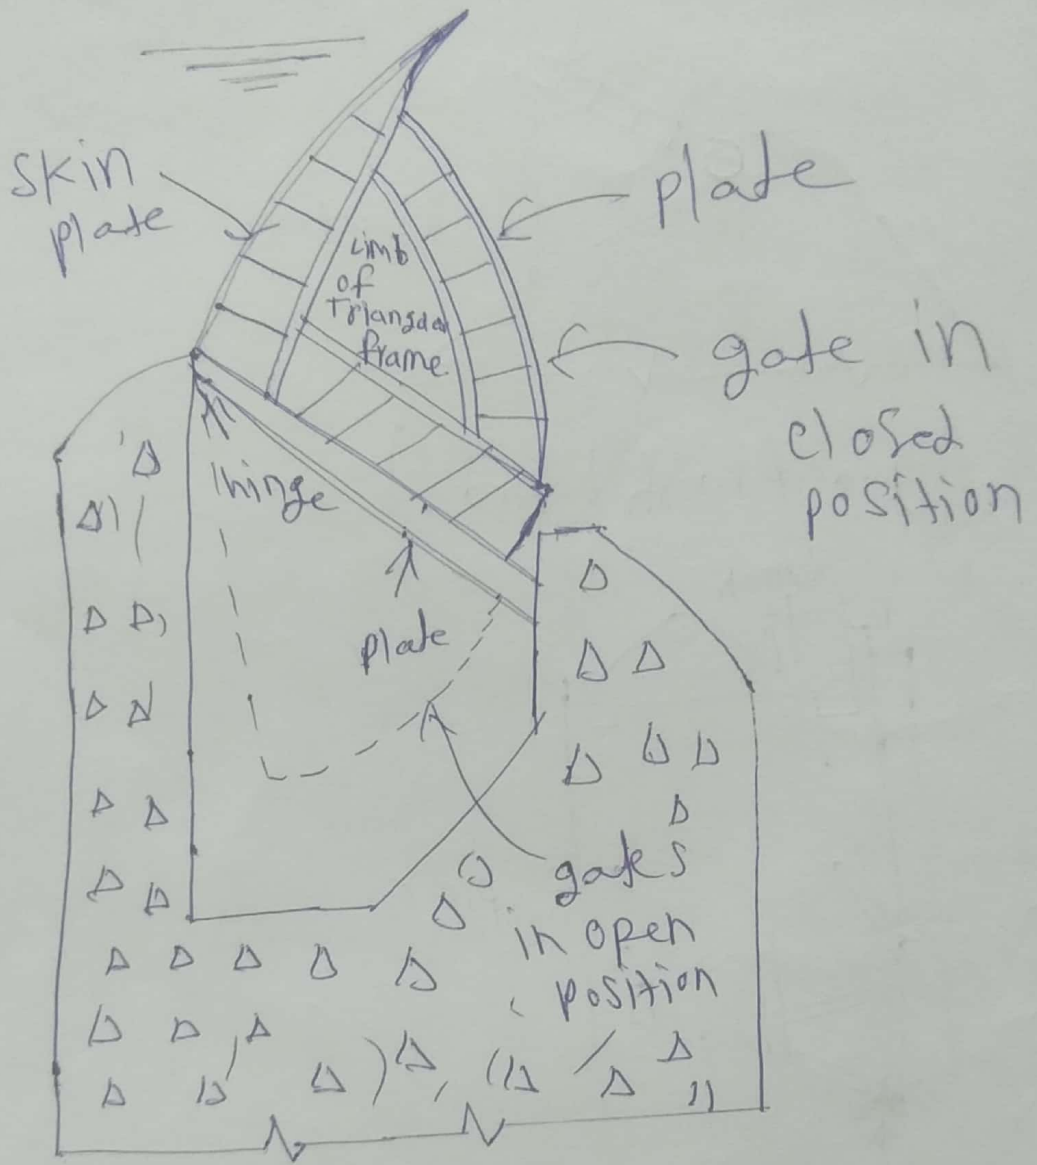 skin
plate
plate
Limb
of
Triangular
frame
gate in
closed
position
hinge
plate
gates
in open
position